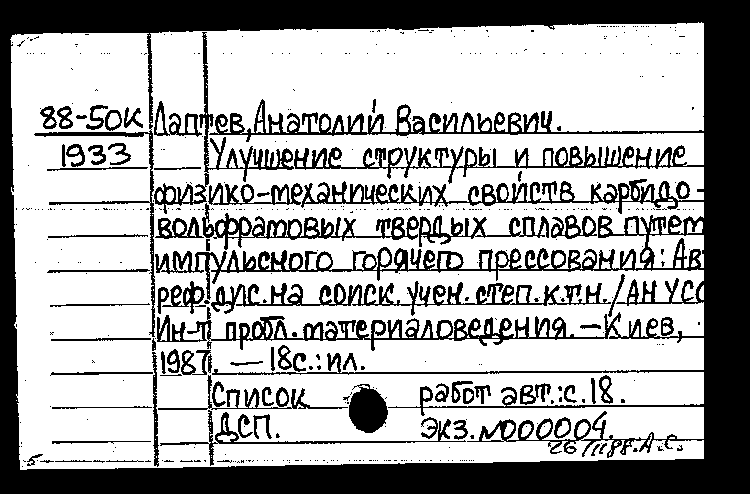 88-50К Лаптев, Анатолий Васильевич.
1933 Улучшение структуры и повышение
физико-механических свойств карбидо-
вольфрамовых твердых сплавов путем
импульсного горячего прессования: Ав
реф. дис. на соиск. учен. степ. к.т.н. / АН УСС
Ин-т пробл. материаловедения. — Киев,
1987. — 18с.: ил.
Список работ авт.: с. 18.
ДСП. Экз. №000004.
88. А.С.
5